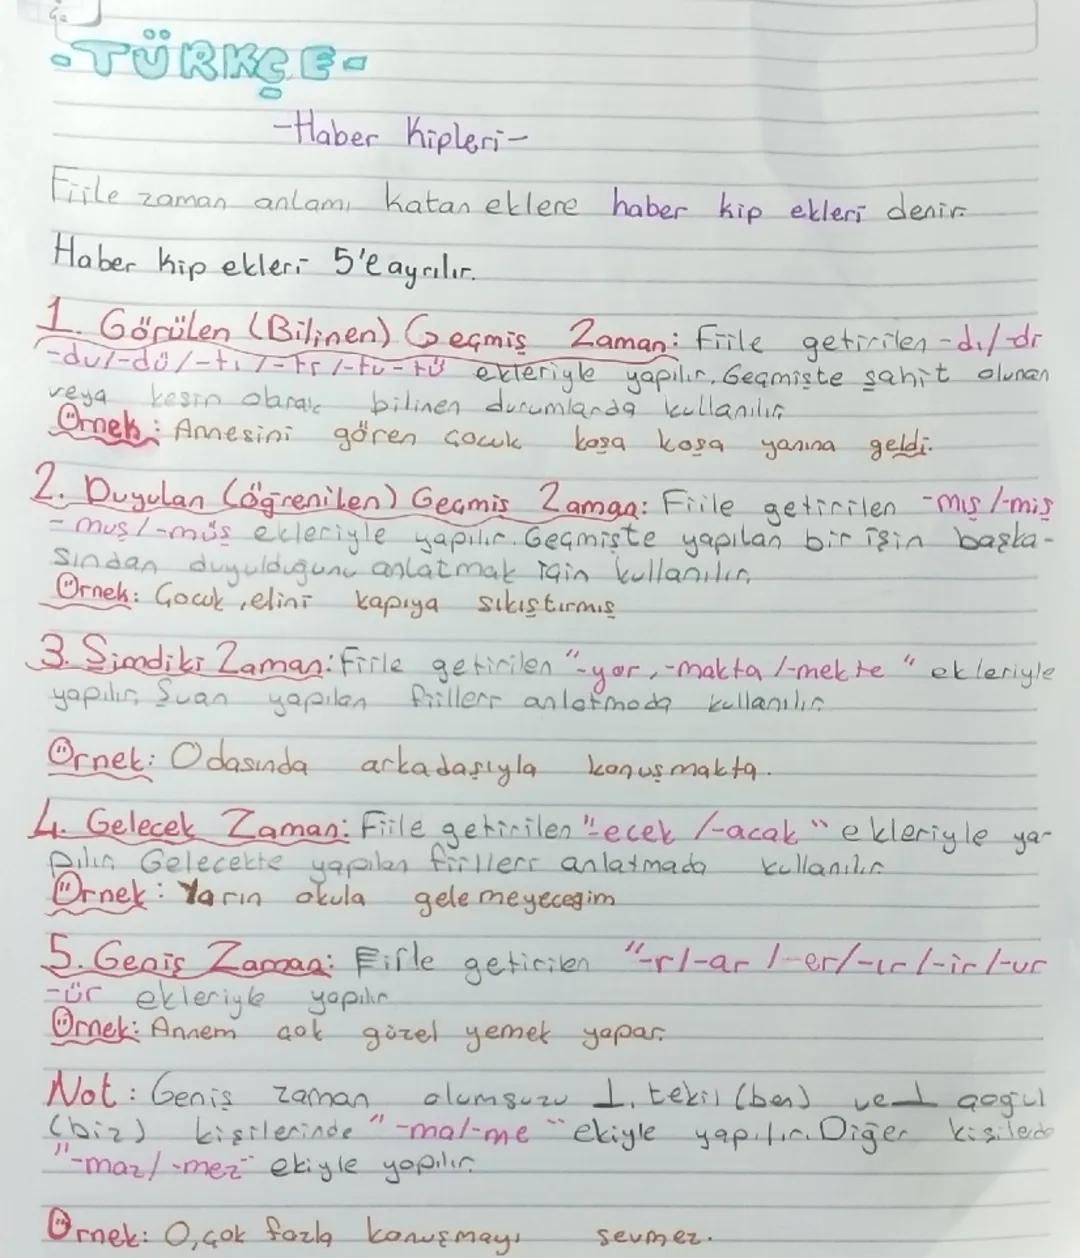 -TÜRKÇE-
-Haber Kipleri-
Fiile zaman anlamı katan eklere haber kip ekleri denir.
Haber kip ekleri 5'e ayrılır.
1. Görülen (Bilinen) Geçmiş Zaman: Fiile getirilen -dı/-di
-du/-dü/-tı/-ti/-tu-tü ekleriyle yapılır. Geçmişte şahit olunan
veya kesin olarak bilinen durumlarda kullanılır
Örnek: Annesini gören çocuk koşa koşa yanına geldi.
2. Duyulan (öğrenilen) Geçmiş Zaman: Fiile getirilen -mış/-miş
-muş/-müş ekleriyle yapılır. Geçmişte yapılan bir işin başka-
sından duyulduğunu anlatmak için kullanılır.
Örnek: Çocuk, elini kapıya sıkıştırmış
3. Şimdiki Zaman: Fiile getirilen "-yor, -makta/-mekte" ekleriyle
yapılır. Şuan yapılan fiilleri anlatmada kullanılır.
Örnek: Odasında arkadaşıyla konuşmakta.
4. Gelecek Zaman: Fiile getirilen "-ecek/-acak" ekleriyle ya-
pılır. Gelecekte yapılan fiilleri anlatmada kullanılır
Örnek: Yarın okula gelemeyeceğim
5. Geniş Zaman: Fiile getirilen "-r/-ar/-er/-ır/-ir/-ur
-ür ekleriyle yapılır
Örnek: Annem çok güzel yemek yapar.
Not: Geniş zaman olumsuzu 1. tekil (ben) ve 1 çoğul
(biz) kişilerinde "-ma/-me" ekiyle yapılır. Diğer kişilerde
"-maz/-mez" ekiyle yapılır.
Örnek: O, çok fazla konuşmayı sevmez.